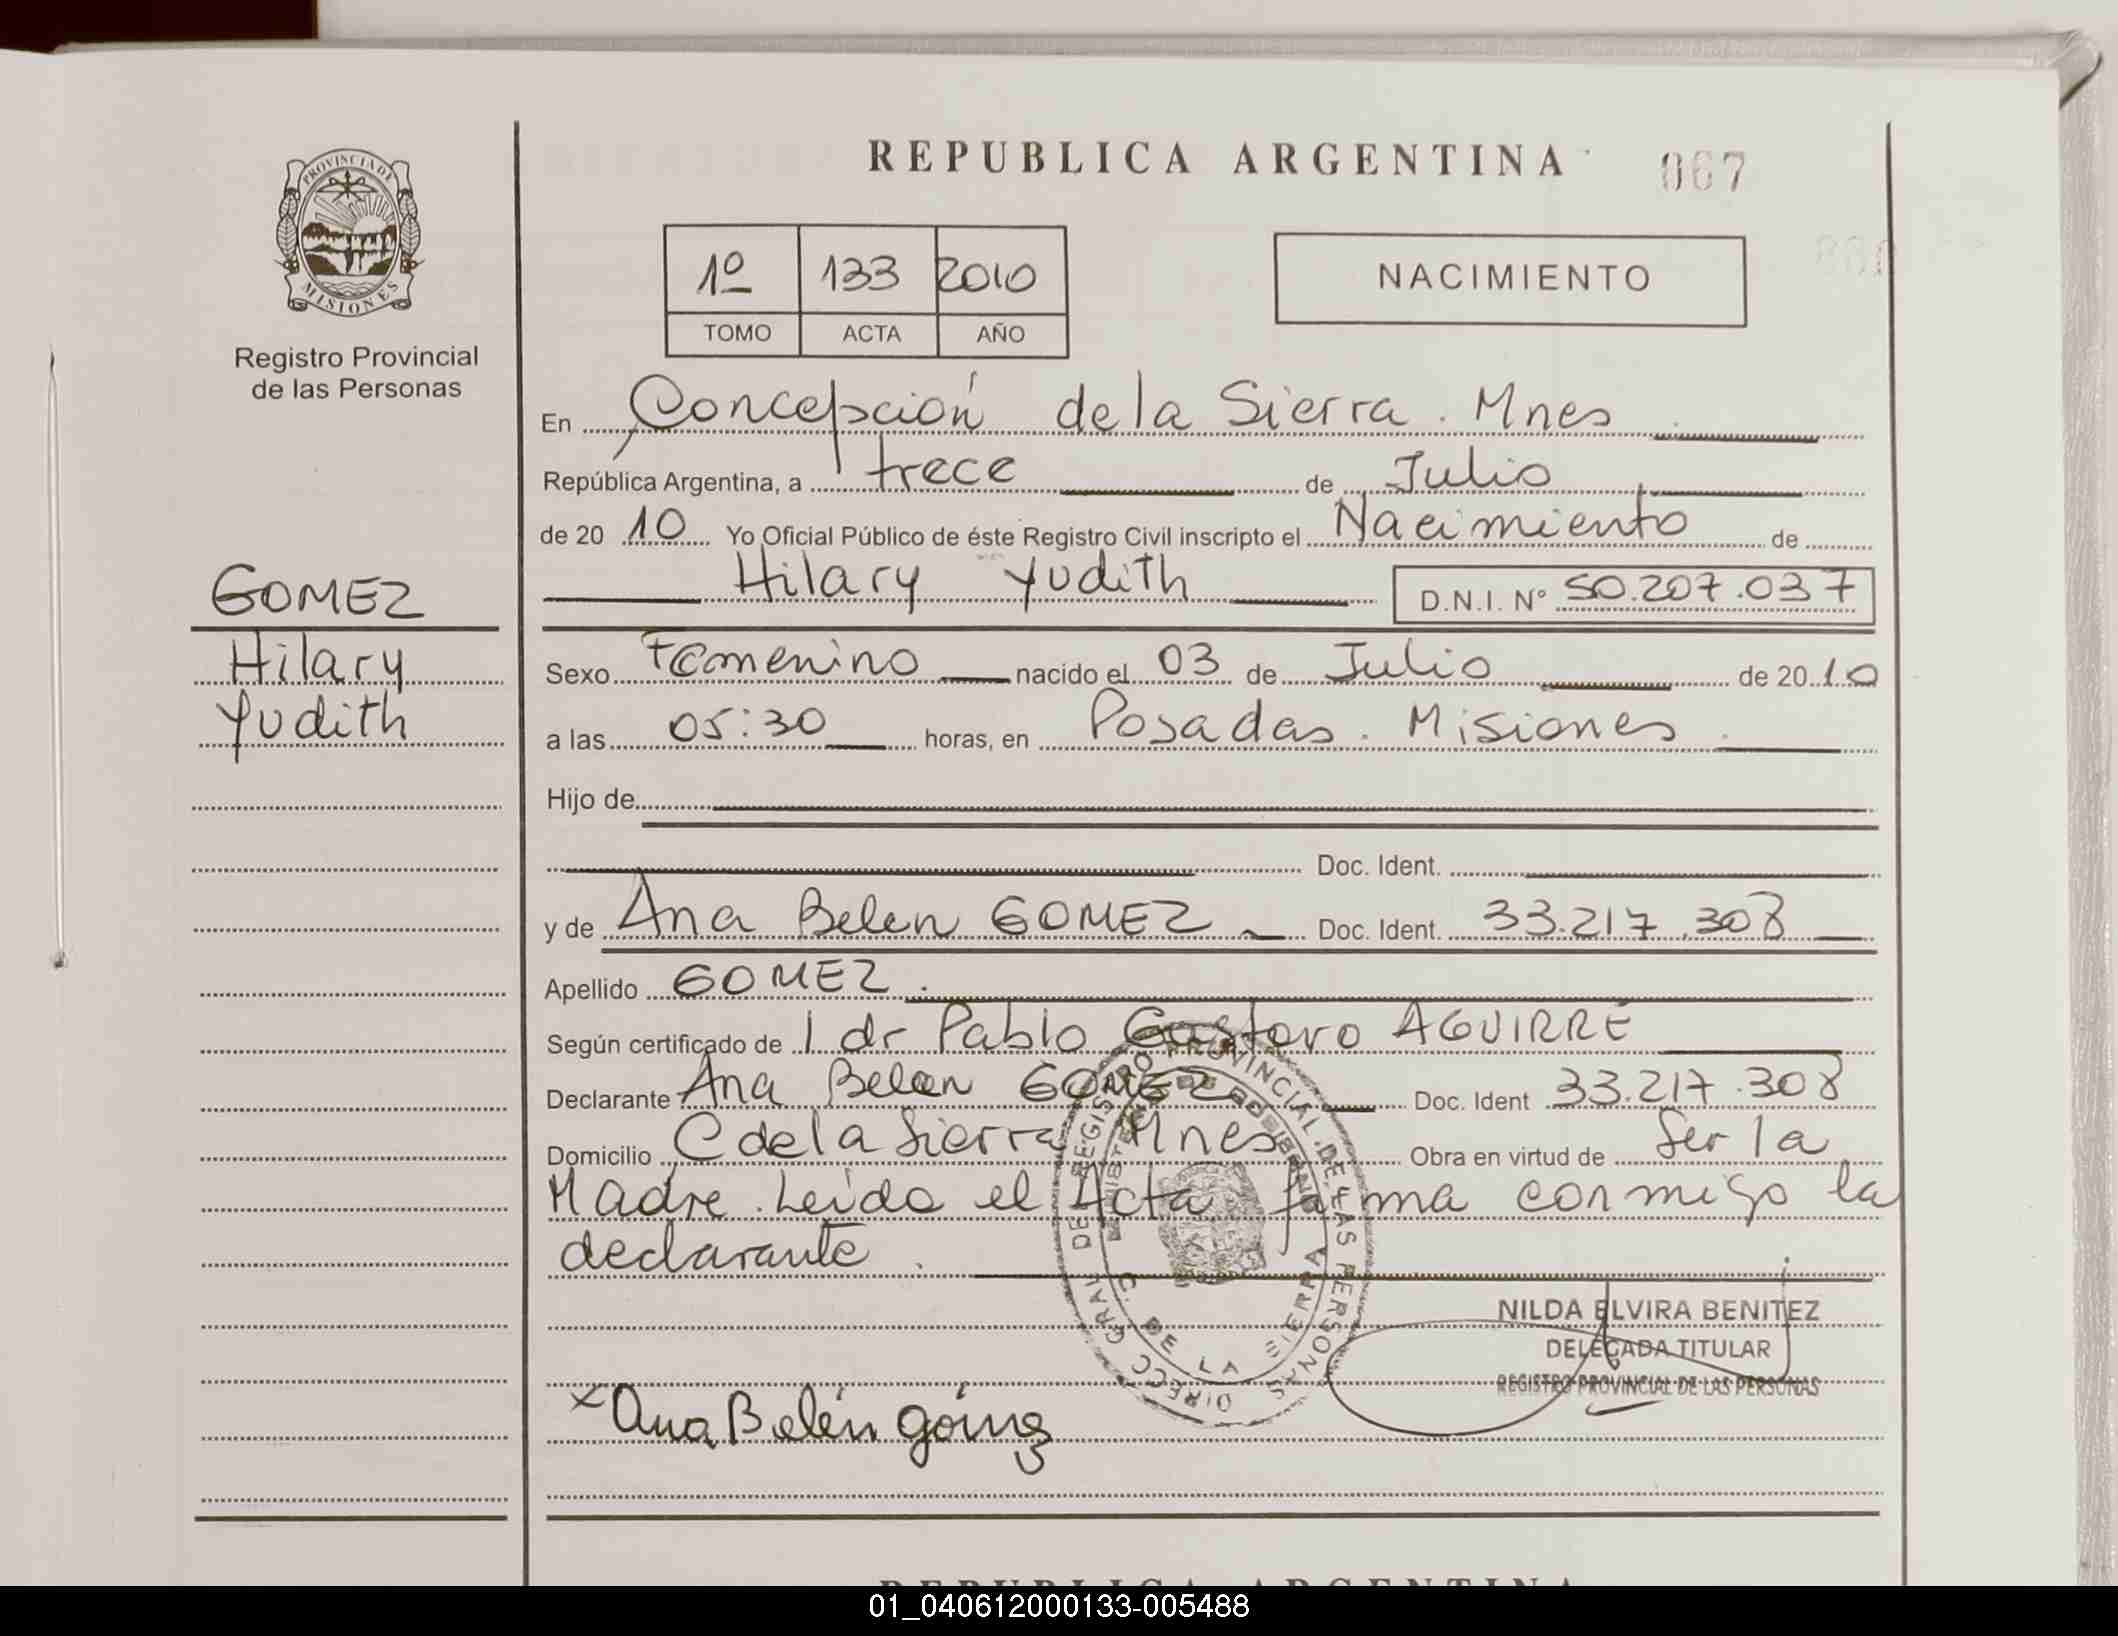 REPUBLICA ARGENTINA
067
PROVINCIA DE
MISIONES
Registro Provincial
de las Personas
1º 133 2010
TOMO ACTA AÑO
NACIMIENTO
En Concepción de la Sierra. Mnes
República Argentina, a trece de Julio
de 20 10 Yo Oficial Público de éste Registro Civil inscripto el Nacimiento de
Hilary Yudith D.N.I. Nº 50.207.037
GOMEZ
Hilary
Yudith
Sexo Femenino nacido el 03 de Julio de 20 10
a las 05:30 horas, en Posadas. Misiones
Hijo de
Doc. Ident.
y de Ana Belen GOMEZ Doc. Ident. 33.217.308
Apellido GOMEZ.
Según certificado de l dr Pablo Gustavo AGUIRRE
Declarante Ana Belen GOMEZ Doc. Ident 33.217.308
Domicilio C de la Sierra Mnes Obra en virtud de Ser la
Madre. Leida el Acta firma conmigo la
declarante.
DIRECC GRAL DE REGISTRO PROVINCIAL DE LAS PERSONAS
C. DE LA SIERRA
NILDA ELVIRA BENITEZ
DELEGADA TITULAR
REGISTRO PROVINCIAL DE LAS PERSONAS
x Ana Belén Gómez
REPUBLICA ARGENTINA
01_040612000133-005488